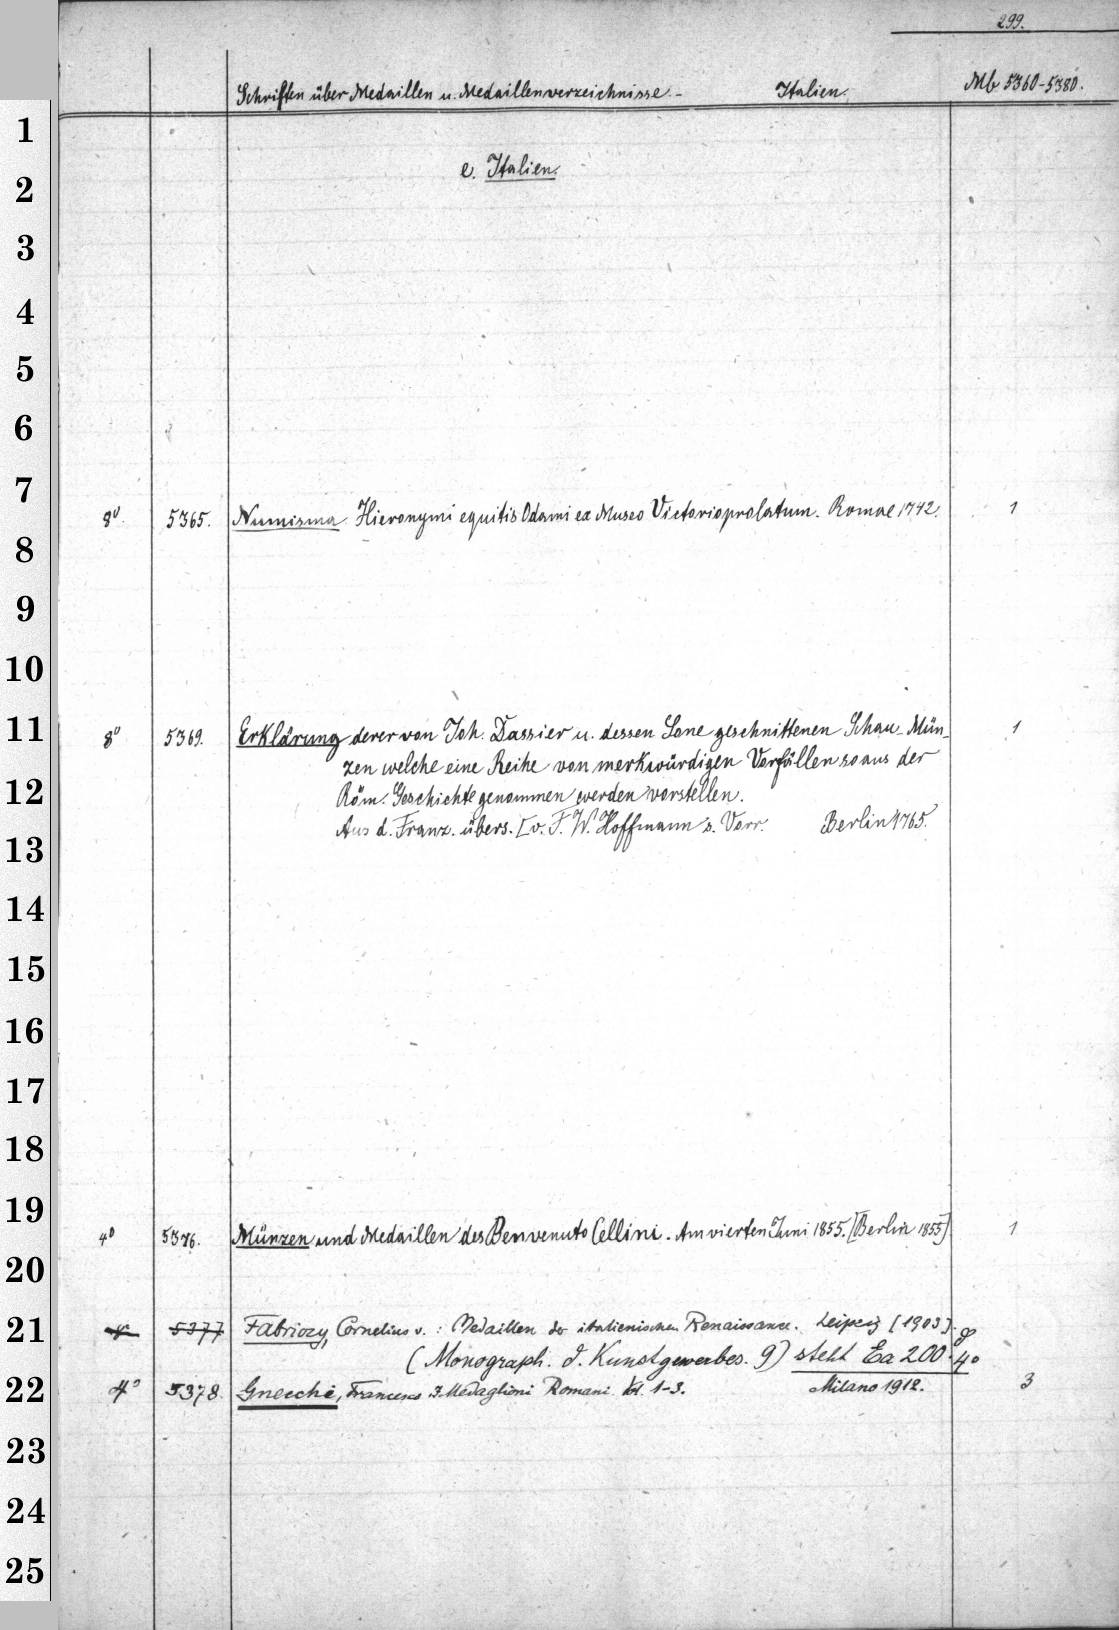 299.
Schriften über Medaillen u. Medaillenverzeichnisse.- Italien. Mb 5360-5380.
e. Italien.
8° 5365. Numisma Hieronymi equitis Odami ex Museo Victorio prolatum. Romae 1742. 1
8° 5369. Erklärung derer von Joh. Dassier u. dessen Sone geschnittenen Schau-Mün- 1
zen welche eine Reihe von merkwürdigen Vorfällen so aus der
Röm. Geschichte genommen werden vorstellen.
Aus d. Franz. übers. [v. F. W. Hoffmann s. Vorr. Berlin 1765.
4° 5376. Münzen und Medaillen des Benvenuto Cellini. Am vierten Juni 1855. [Berlin 1855] 1
4° 5377 Fabriczy, Cornelius v. : Medaillen der italienischen Renaissance. Leipzig [1903].
(Monograph. d. Kunstgewerbes. 9) steht Ea 200 4°
4° 5378. Gnecchi, Francesco I Medaglioni Romani 1-3. Milano 1912. 3
1
2
3
4
5
6
7
8
9
10
11
12
13
14
15
16
17
18
19
20
21
22
23
24
25